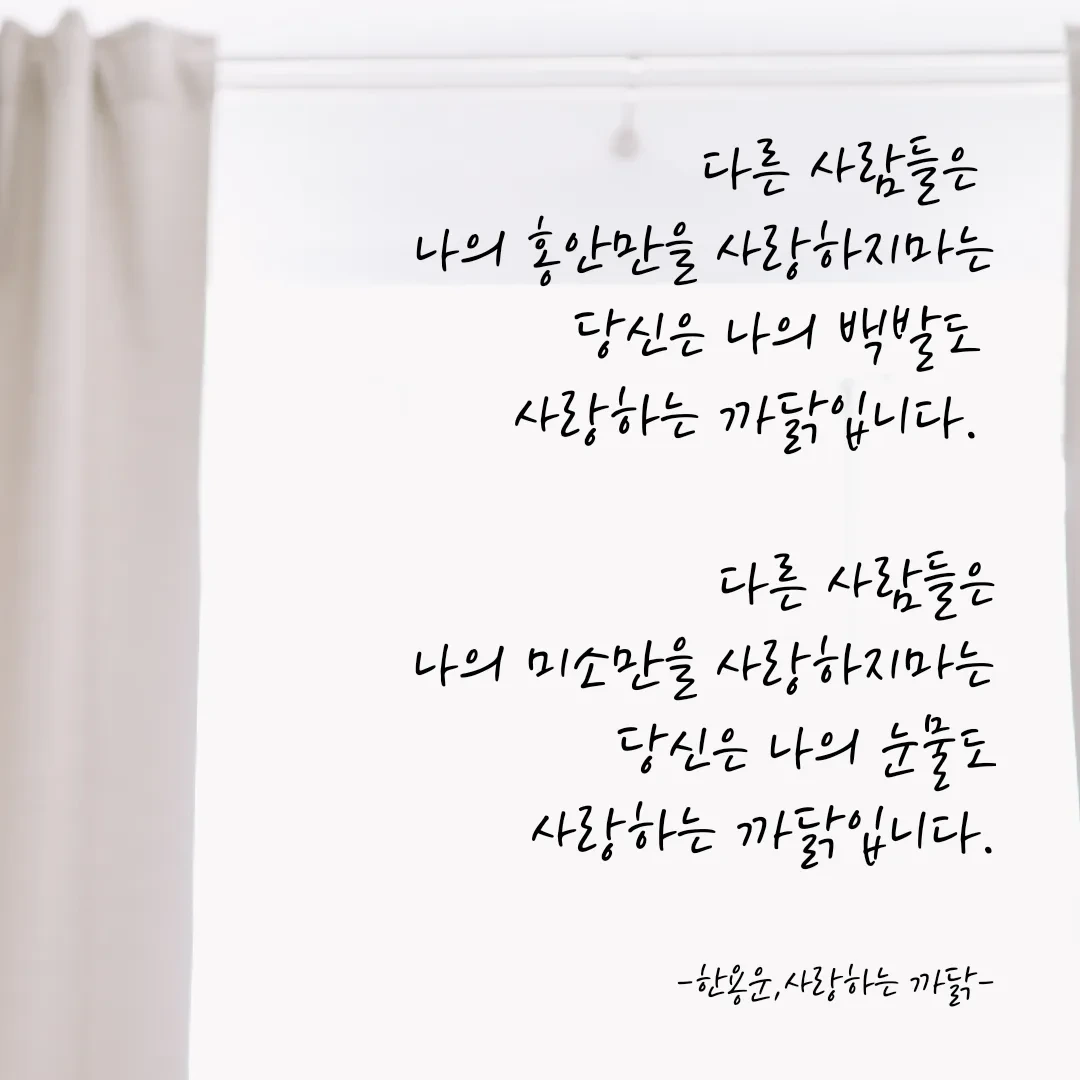 다른 사람들은
나의 홍안만을 사랑하지마는
당신은 나의 백발도
사랑하는 까닭입니다.
다른 사람들은
나의 미소만을 사랑하지마는
당신은 나의 눈물도
사랑하는 까닭입니다.
-한용운,사랑하는 까닭-